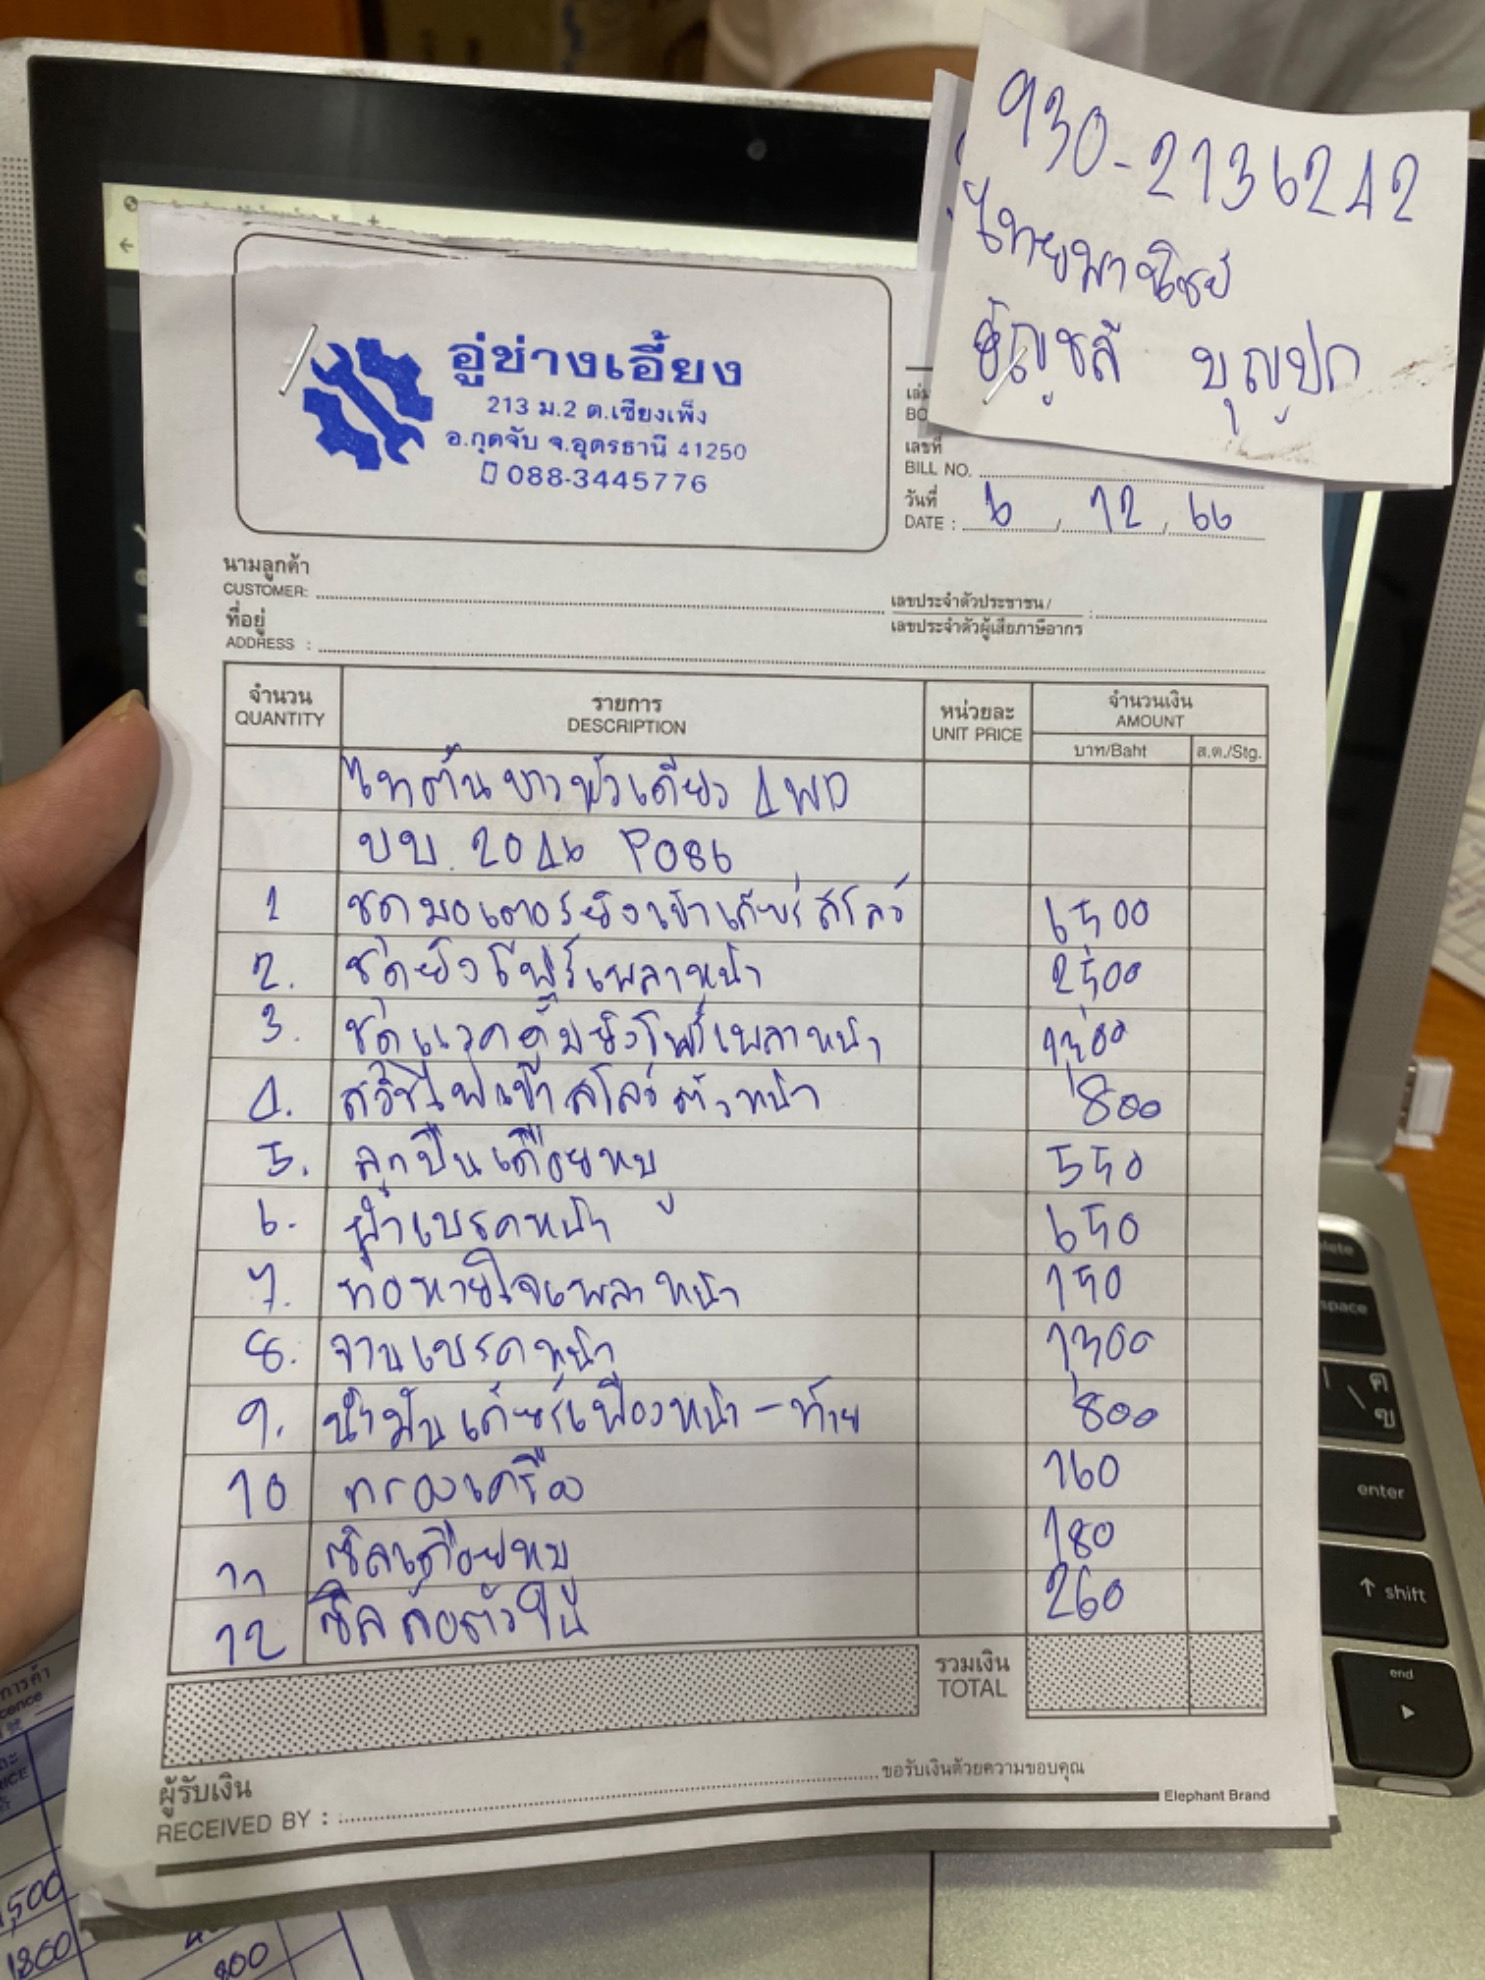 930-2136242
ไทยพานิชย์
ธัญชลี บุญปก
อู่ช่างเอี้ยง
213 ม.2 ต.เชียงเพ็ง
อ.กุดจับ จ.อุดรธานี 41250
088-3445776
เลขที่
BILL NO.
วันที่
DATE : 6 / 12 / 66
นามลูกค้า
CUSTOMER:
เลขประจำตัวประชาชน/
เลขประจำตัวผู้เสียภาษีอากร :
ที่อยู่
ADDRESS :
จำนวน รายการ หน่วยละ จำนวนเงิน
QUANTITY DESCRIPTION UNIT PRICE AMOUNT
บาท/Baht ส.ต./Stg.
ไทตันขาวหัวเดียว 4WD
บบ. 2046 P086
1 ชุดมอเตอร์ยิงเข้าเกียร์สโลว์ 6500
2. ชุดยิงโฟร์เพลาหน้า 2500
3. ชุดแวคคั่มยิงโฟร์เพลาหน้า 1200
4. สวิชไฟเข้าสโลว์ตัวหน้า 800
5. ลูกปืนเดือยหมู 550
6. ผ้าเบรคหน้า 650
7. ท่อหายใจเพลาหน้า 150
8. จานเบรคหน้า 1300
9. น้ำมันเกียร์เฟืองหน้า - ท้าย 800
10 กรองเครื่อง 160
11 ซิลเดือยหมู 180
12 ซิลล้อตัวใน 260
รวมเงิน
TOTAL
ผู้รับเงิน
RECEIVED BY : ขอรับเงินด้วยความขอบคุณ
Elephant Brand